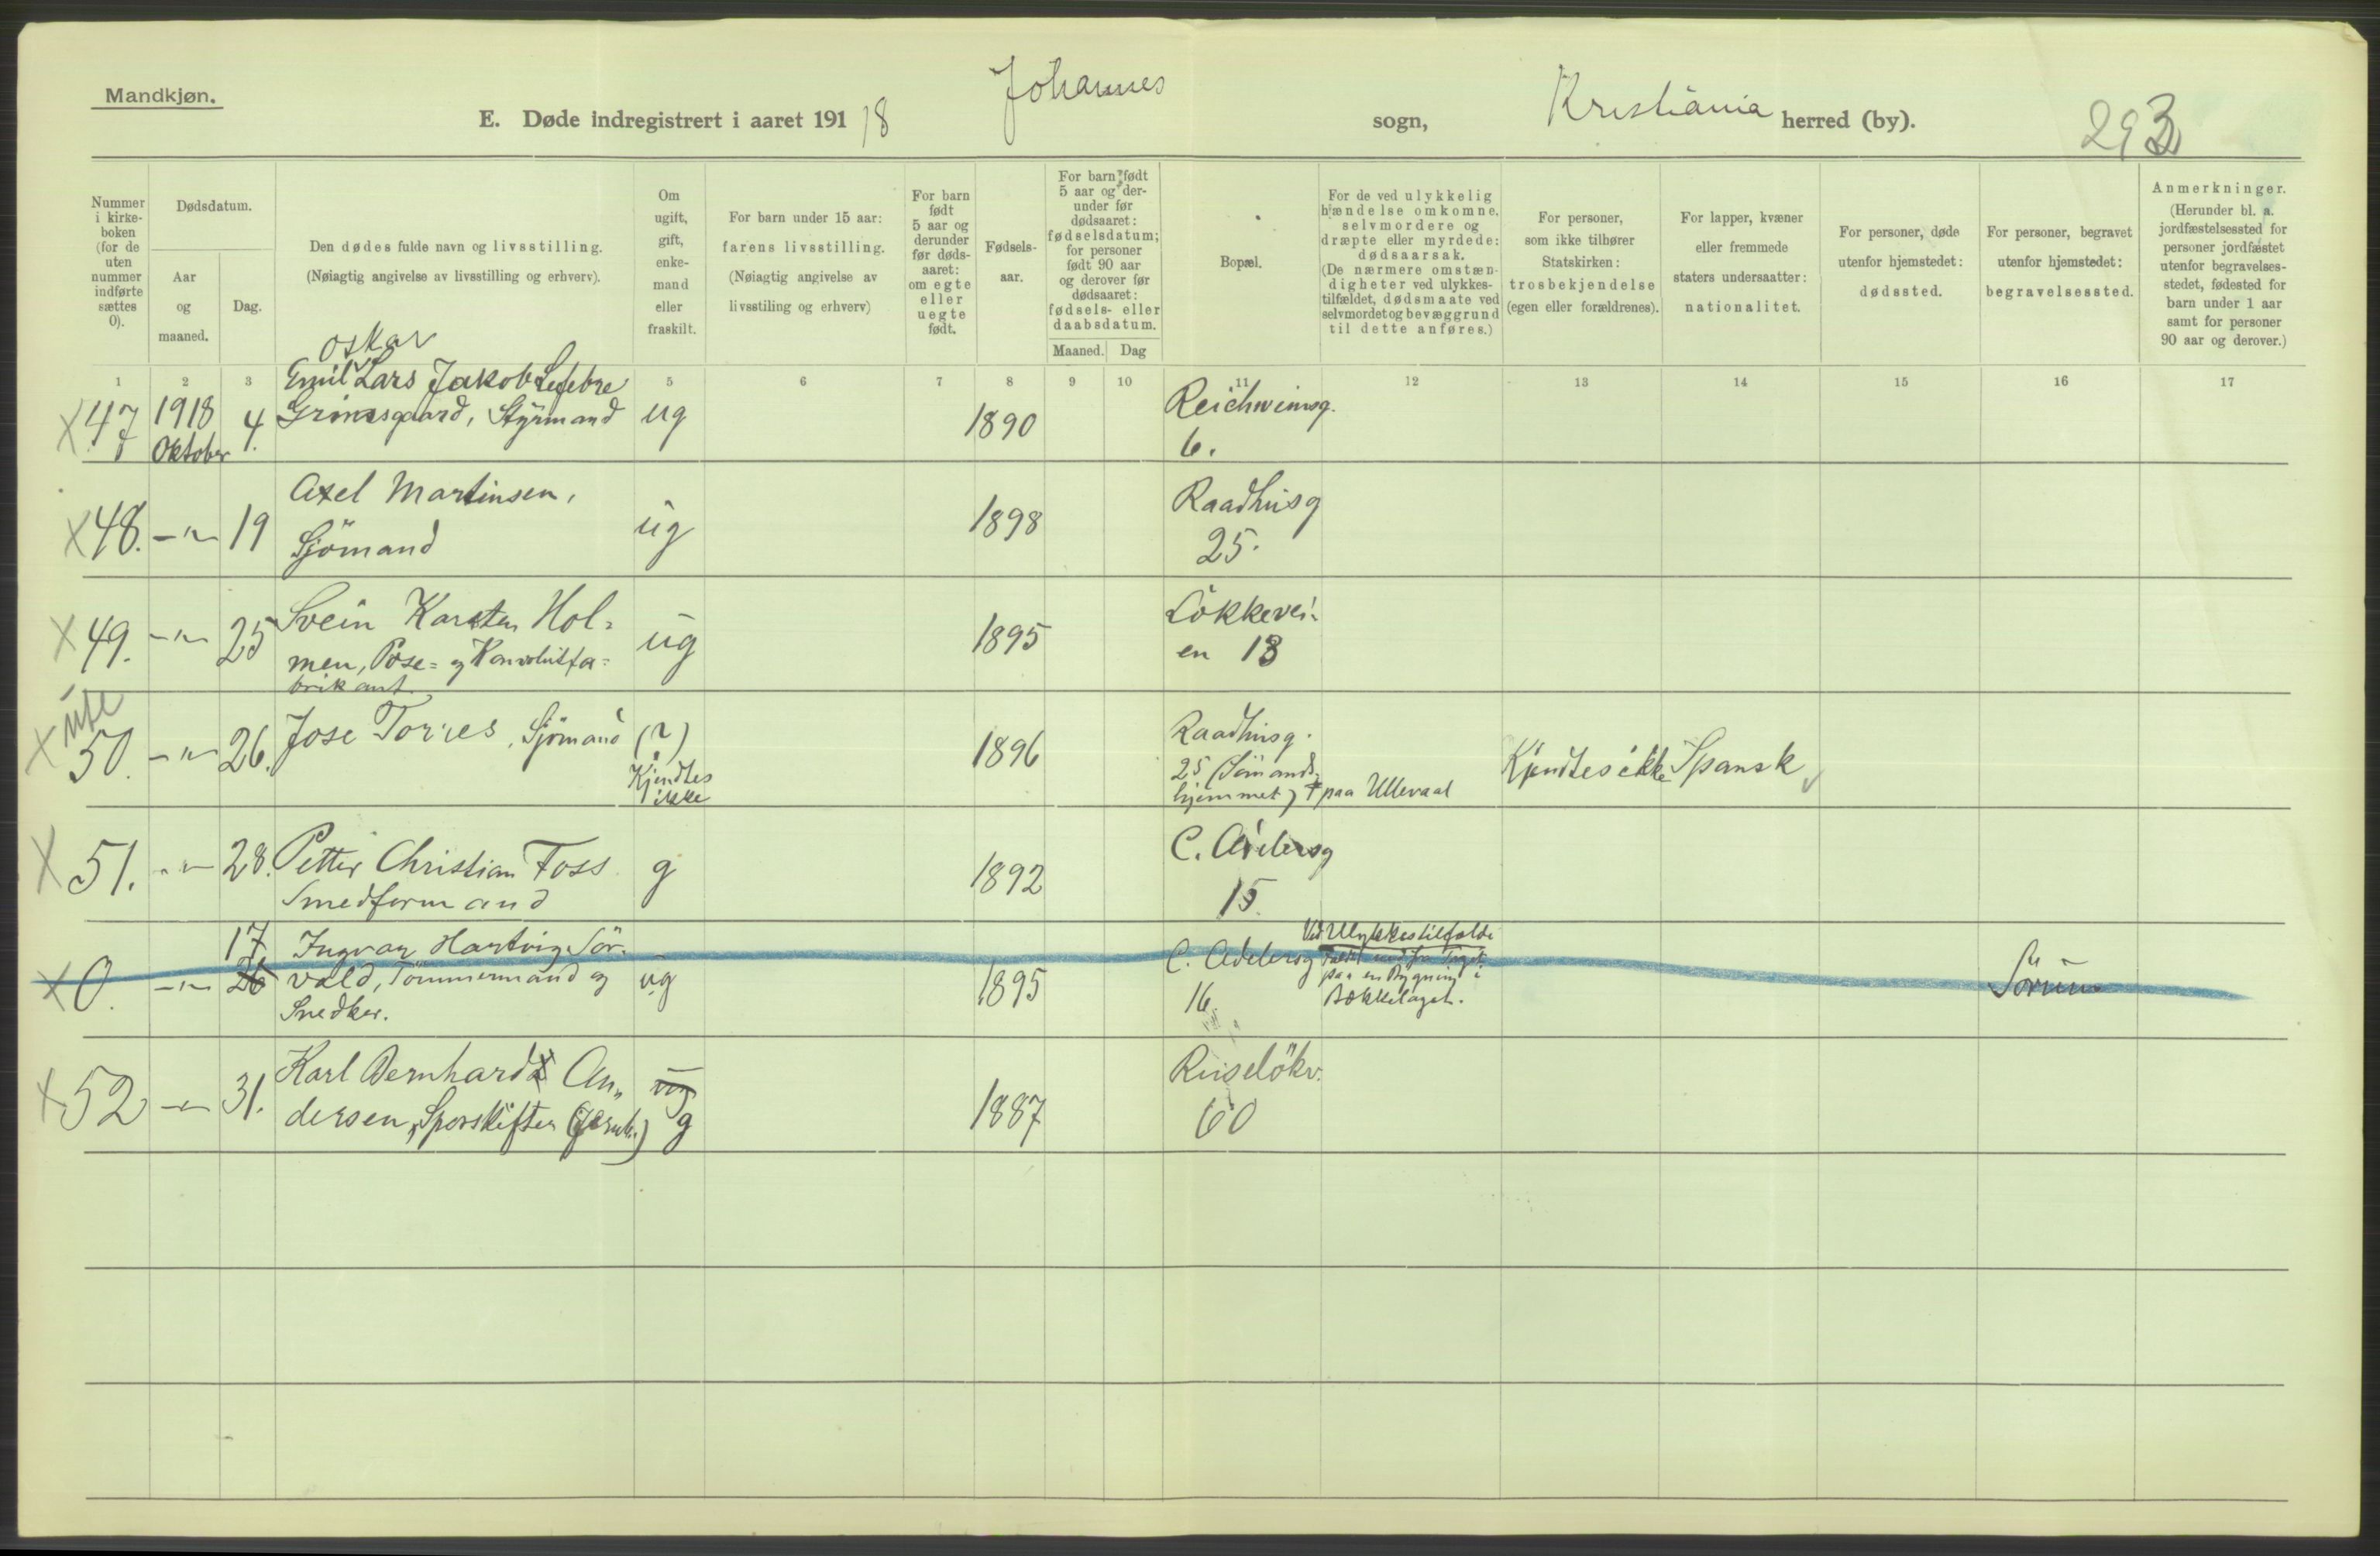 Mandkjøn.
E. Døde indregistrert i aaret 1918 Johannes sogn, Kristiania herred (by). 293
Nummer i kirke- boken (for de uten nummer indførte sættes 0).
Dødsdatum.
Aar og maaned.
Dag.
Den dødes fulde navn og livsstilling.
(Nøiagtig angivelse av livsstilling og erhverv).
Om ugift, gift, enke- mand eller fraskilt.
For barn under 15 aar: farens livsstilling.
(Nøiagtig angivelse av livsstiling og erhverv)
For barn født 5 aar og derunder før døds- aaret: om egte eller uegte født.
Fødsels- aar.
For barn født 5 aar og der- under før dødsaaret: fødselsdatum; for personer født 90 aar og derover før dødsaaret: fødsels- eller daabsdatum.
Maaned. Dag
Bopæl.
For de ved ulykkelig hændelse omkomne, selvmordere og dræpte eller myrdede: dødsaarsak.
(De nærmere omstæn- digheter ved ulykkes- tilfældet, dødsmaate ved selvmordet og bevæggrund til dette anføres.)
For personer, som ikke tilhører Statskirken: trosbekjendelse (egen eller forældrenes).
For lapper, kvæner eller fremmede staters undersaatter: nationalitet.
For personer, døde utenfor hjemstedet: dødssted.
For personer, begravet utenfor hjemstedet: begravelsessted.
Anmerkninger.
(Herunder bl. a. jordfæstelsessted for personer jordfæstet utenfor begravelses- stedet, fødested for barn under 1 aar samt for personer 90 aar og derover.)
1 2 3 5 6 7 8 9 10 11 12 13 14 15 16 17
Oskar
Emil Lars Jakob Lefebre
X 47 1918 Oktober 4. Grimsgaard, Styrmand ug 1890 Reichweinsg. 6.
X 48. -"- 19 Axel Martinsen, Sjömand ug 1898 Raadhusg 25.
X 49. -"- 25 Svein Karsten Hol= men, Pose= og Konvolutfa= brikant ug 1895 Lökkevei- en 13
X ute
50. -"- 26. Jose Torres, Sjömand (?) Kjendtes ikke 1896 Raadhusg. 25 (Sömands- hjemmet) † paa Ullevaal Kjendtes ikke Spansk
X 51. -"- 28. Petter Christian Foss Smedformand g 1892 C. Adelersg 15.
X 0. -"- 17 26 Ingvar Hartvig Sör- vald, Tömmermand og Snedker. ug 1895 C. Adelersg 16. Ved Ulykkestilfælde Faldt ned fra Taget paa en Bygning i Bækkelaget. Sörum
X 52 -"- 31. Karl Bernhard An- dersen, Sporskifter (Jernb.) ug g 1887 Ruselökv. 60